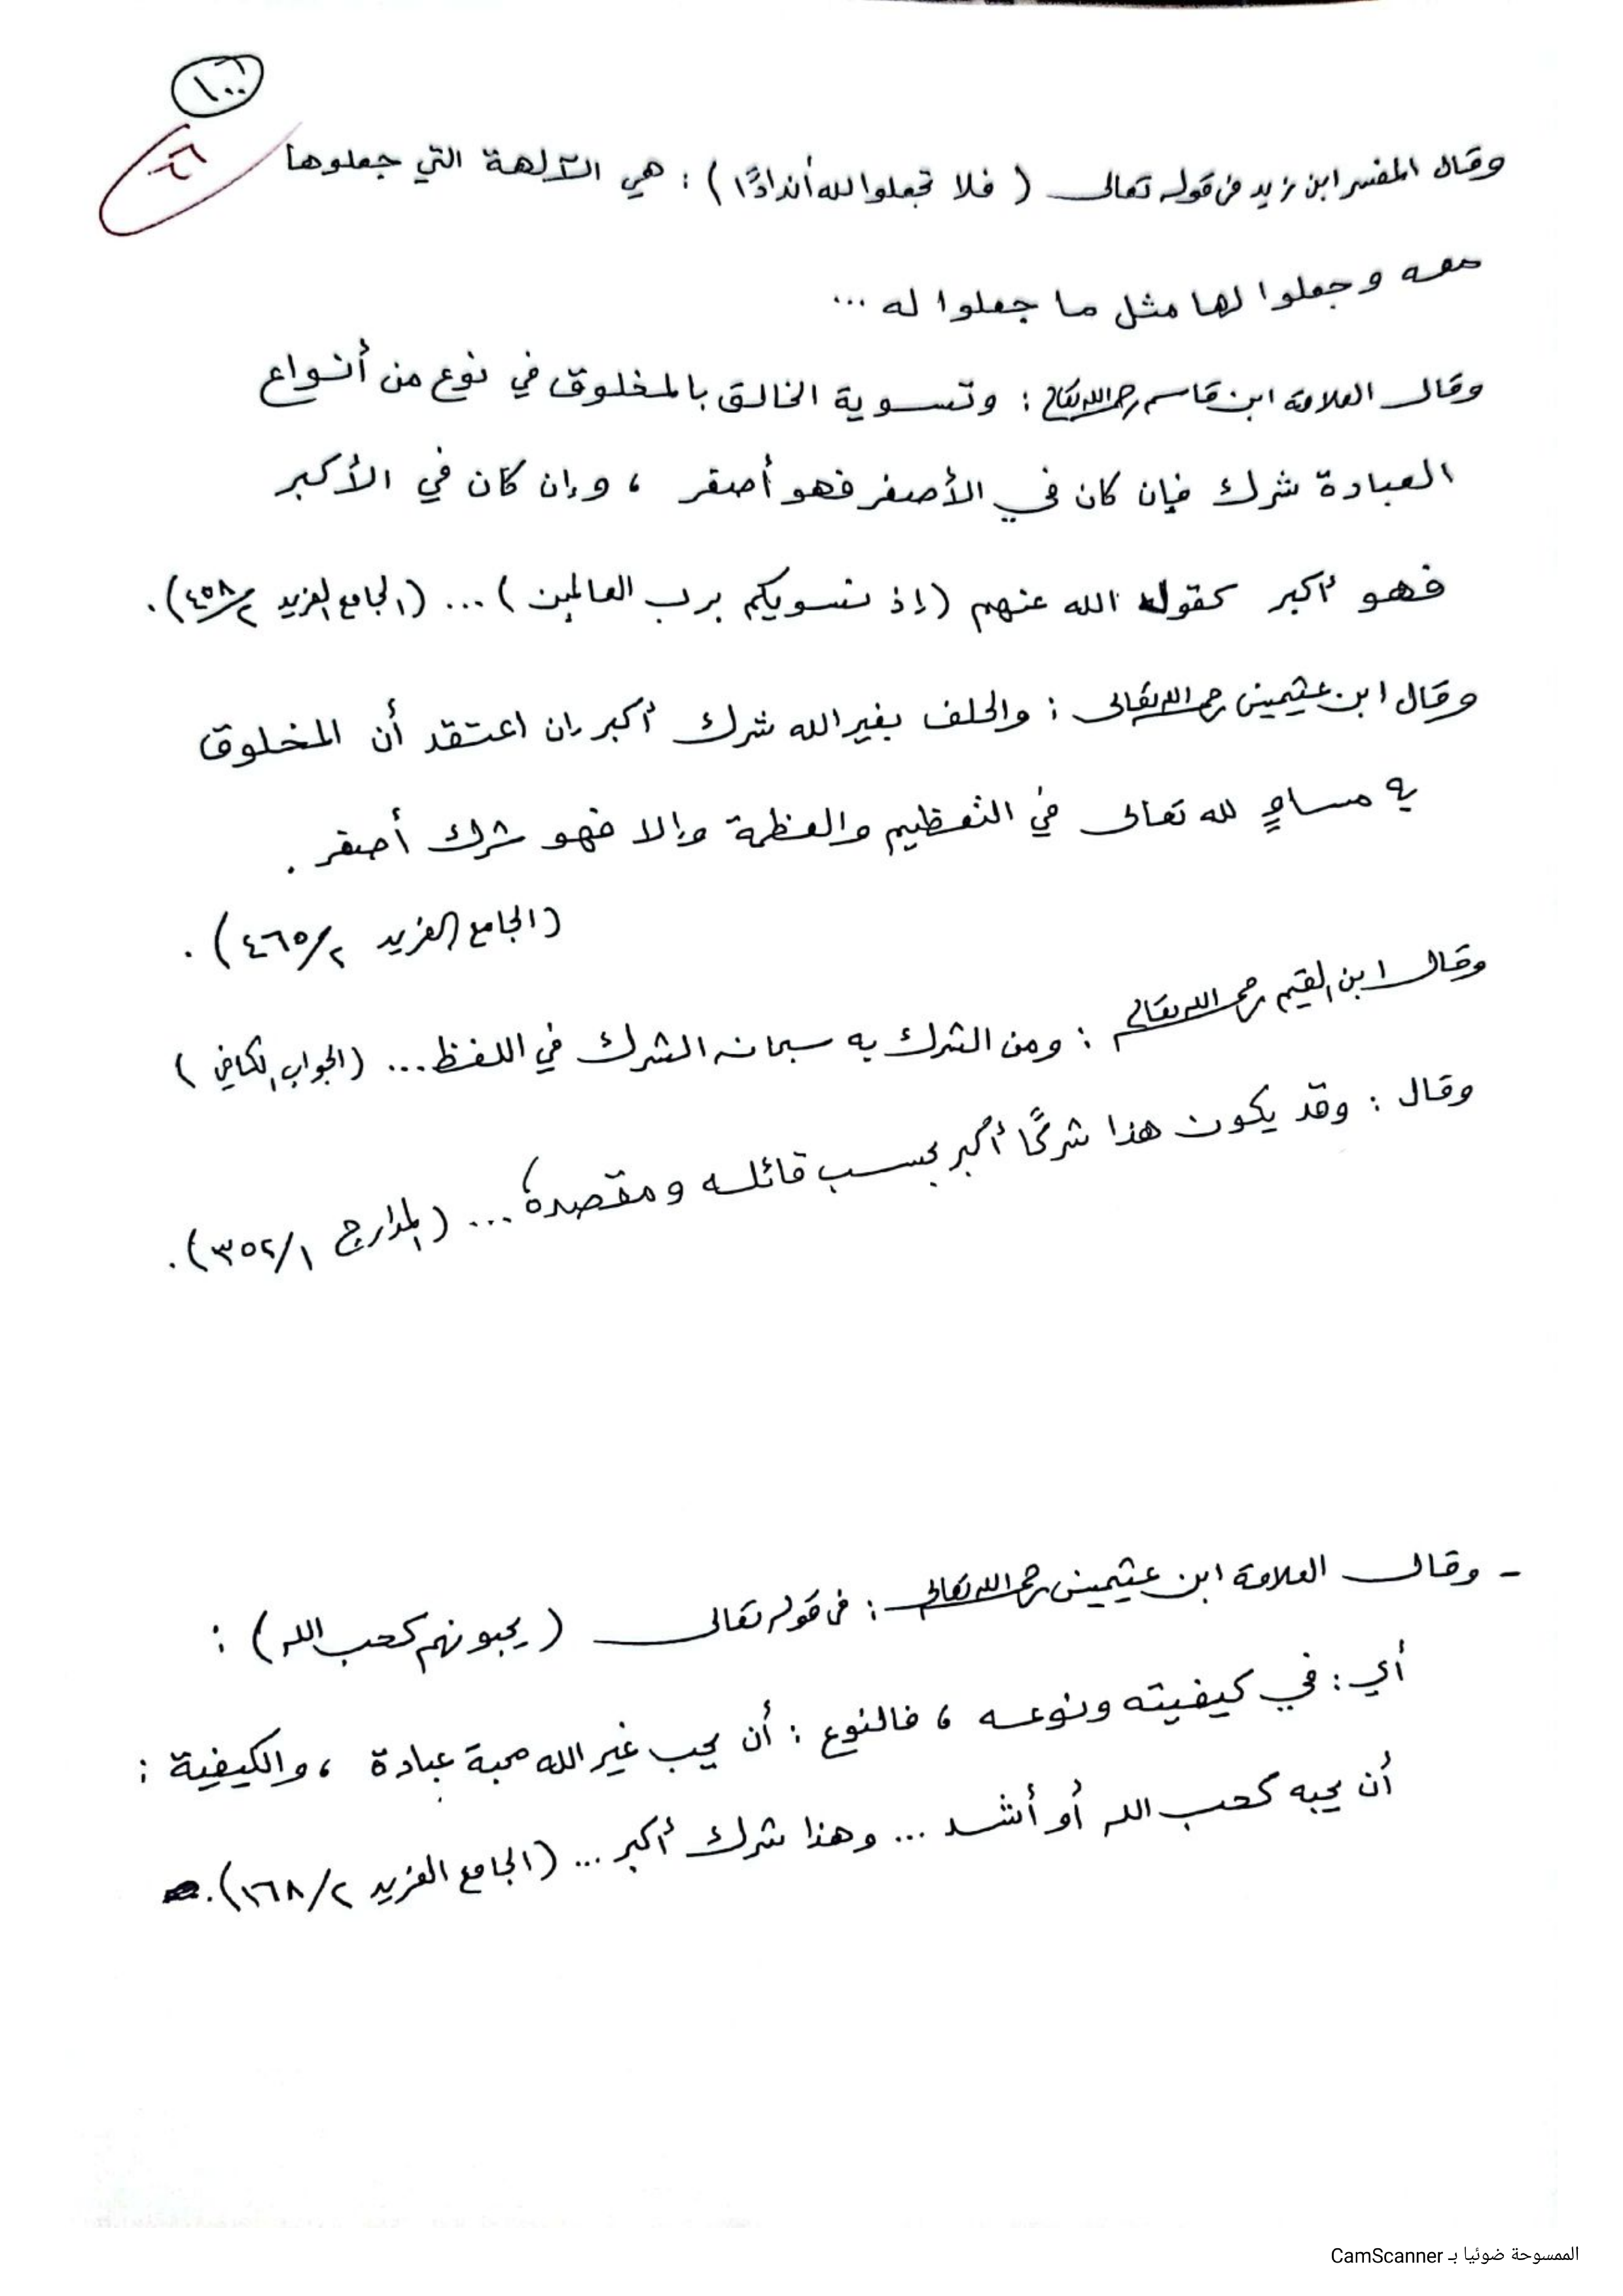 ١٠٠
٤٦
وقال المفسر ابن زيد في قوله تعالى ( فلا تجعلوا لله أندادًا ) : هي الآلهة التي جعلوها
معه وجعلوا لها مثل ما جعلوا له ...
وقال العلامة ابن قاسم رحمه الله تعالى : وتسوية الخالق بالمخلوق في نوع من أنواع
العبادة شرك فإن كان في الأصغر فهو أصغر ، وإن كان في الأكبر
فهو أكبر كقوله الله عنهم (إذ نسويكم برب العالمين ) ... (الجامع الفريد ٤٥٨/٢).
وقال ابن عثيمين رحمه الله تعالى : والحلف بغير الله شرك أكبر إن اعتقد أن المخلوق
به مساوٍ لله تعالى في التعظيم والعظمة وإلا فهو شرك أصغر .
(الجامع الفريد ٤٦٥/٢ ) .
وقال ابن القيم رحمه الله تعالى : ومن الشرك به سبحانه الشرك في اللفظ ... (الجواب الكافي )
وقال : وقد يكون هذا شركًا أكبر بحسب قائله ومقصده ... (المدارج ٣٥٢/١).
- وقال العلامة ابن عثيمين رحمه الله تعالى : في قوله تعالى ( يحبونهم كحب الله ) :
أي : في كيفيته ونوعه ، فالنوع : أن يحب غير الله محبة عبادة ، والكيفية :
أن يحبه كحب الله أو أشد ... وهذا شرك أكبر ... (الجامع الفريد ١٦٨/٢).
الممسوحة ضوئيا بـ CamScanner